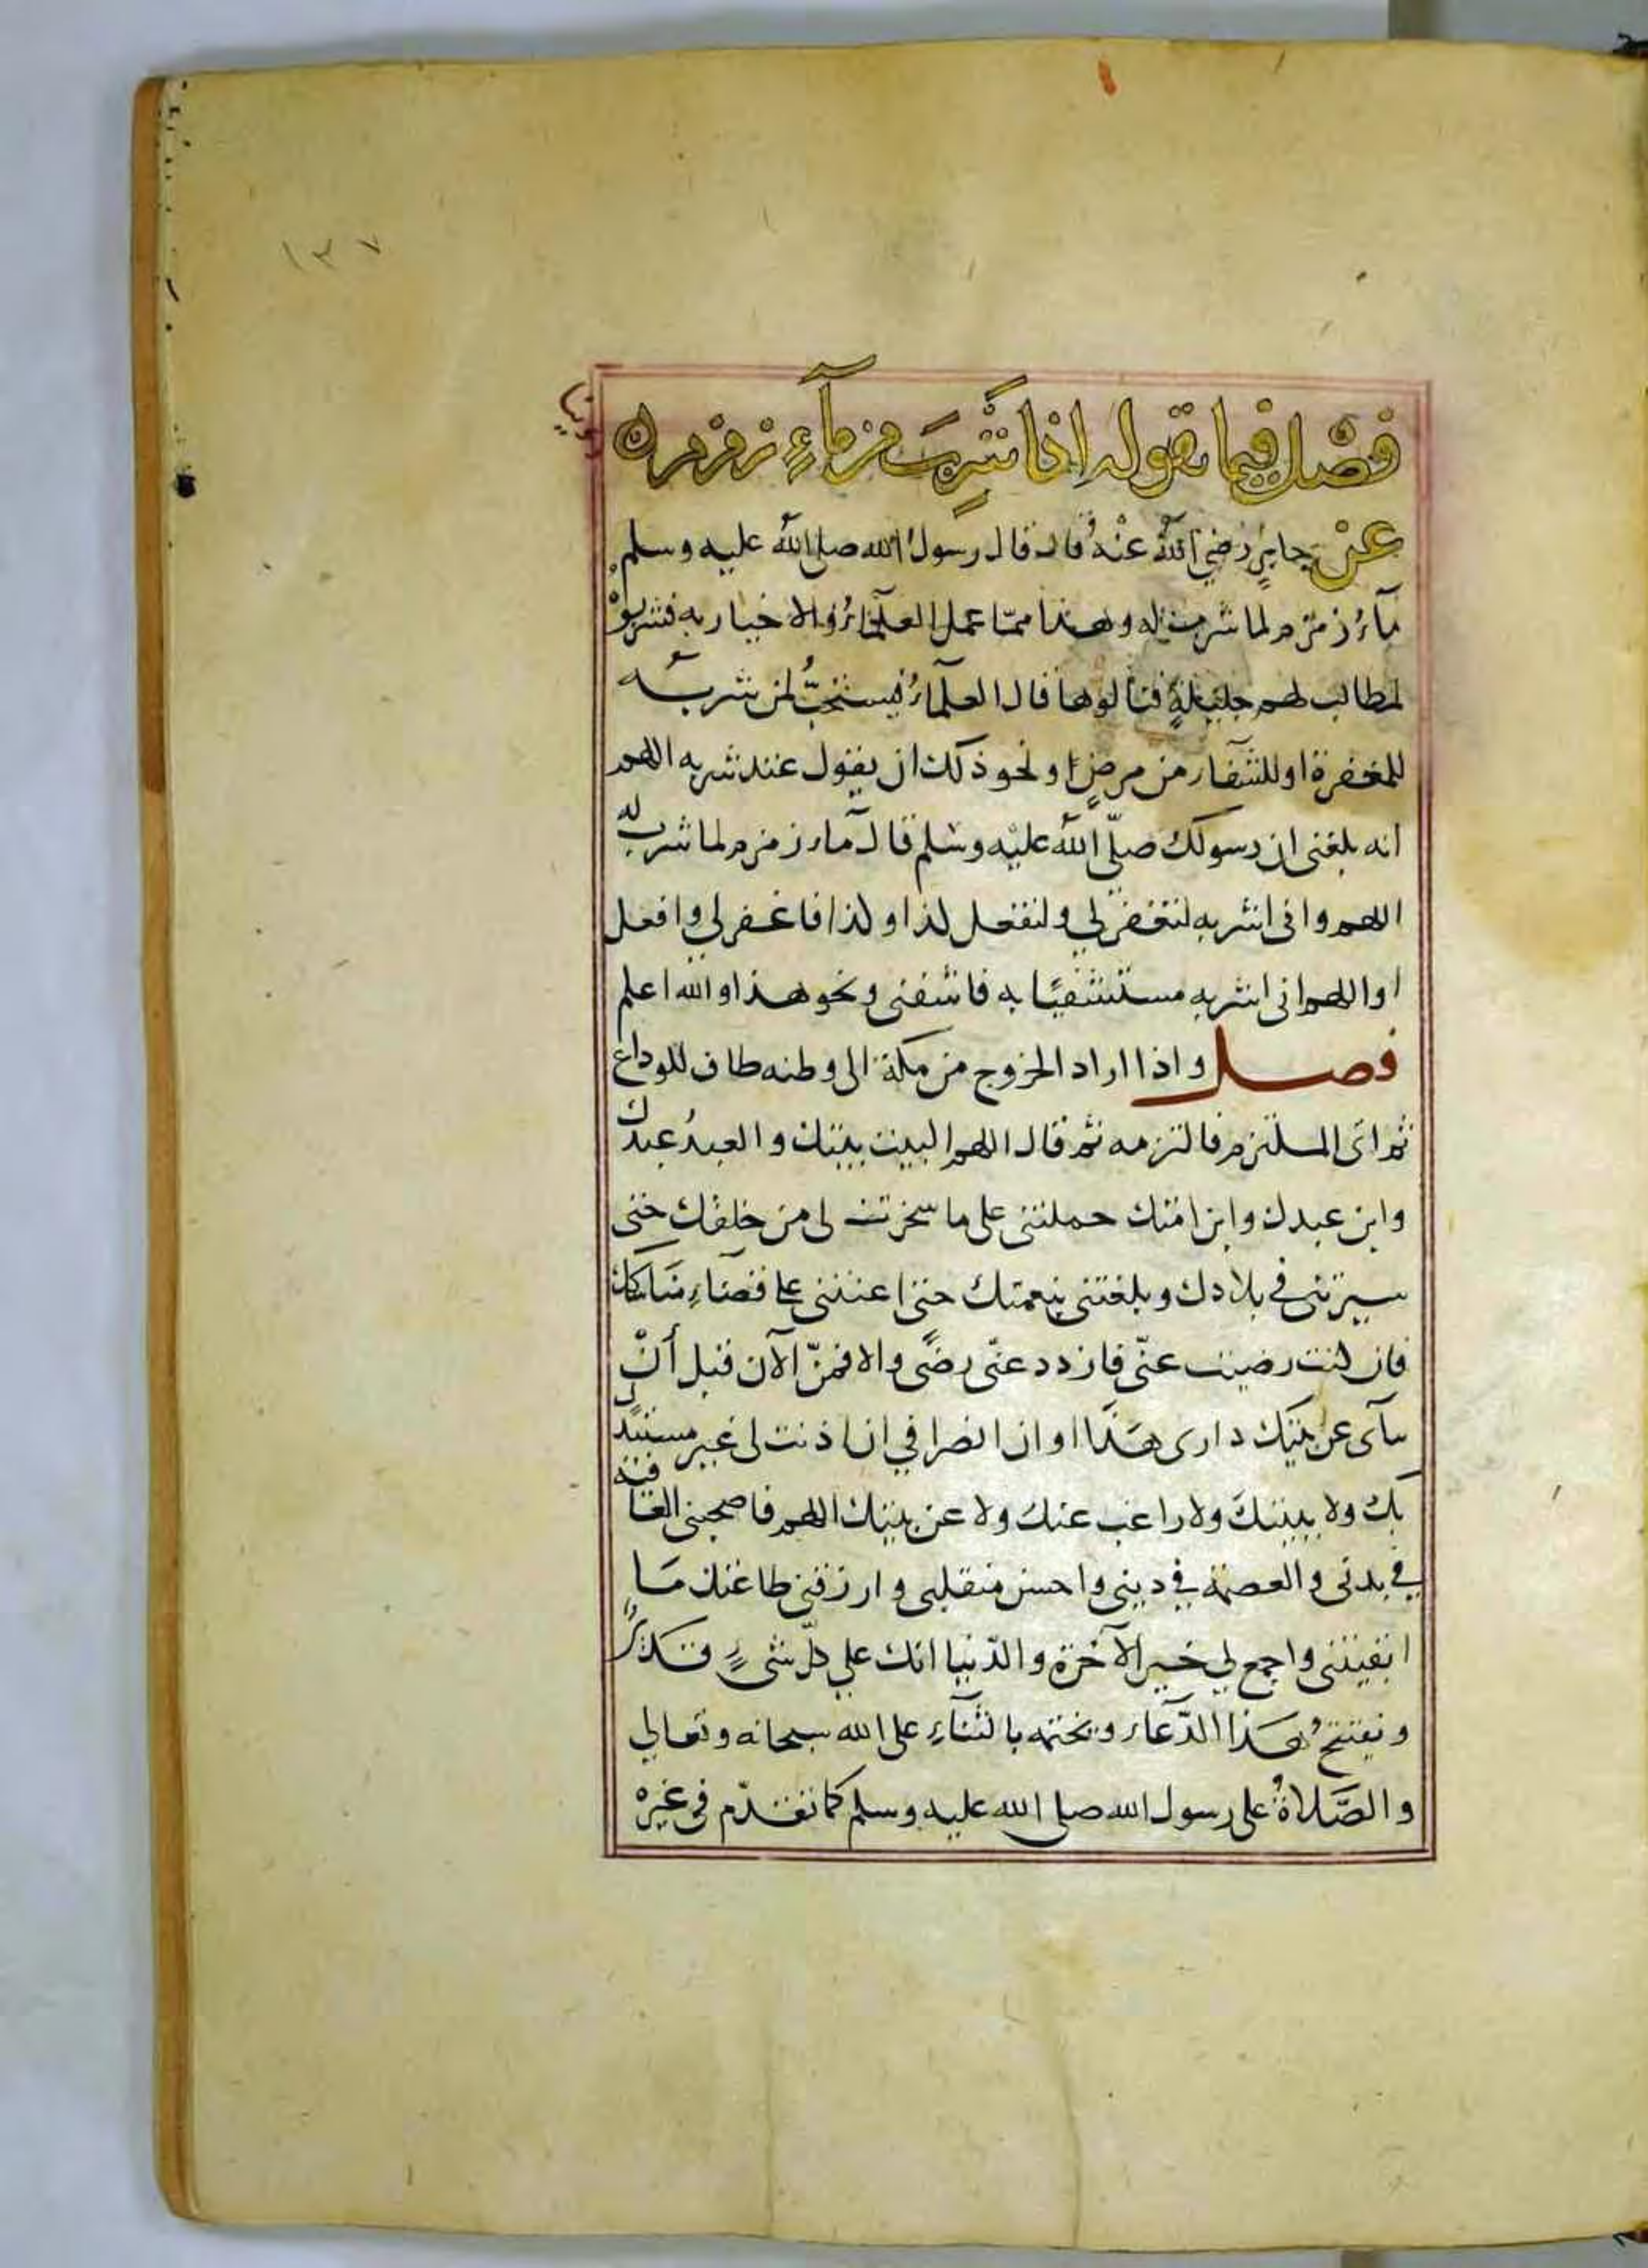 ١٣٧
فصْل فيما يقوله اذا شَرِبَ من مآءِ زمزم
عنْ جابرٍ رَضي اللّه عنْهُ قال قال رسولُ الله صلى اللّه عليه وسلم
مآءُ زمزم لما شرب له وهذا ممّا عمل العلمَآءُ والاخيار به فشربوْ
لمطالب لهم جليلةٍ فنالوها قال العلمآءُ فيستحبُّ لمن شربه
للمغفرة او للشفآء من مرضٍ او نحو ذلك ان يقول عند شربه اللهم
انه بلغنى ان رسولك صلّى اللّه عليْه وسَلم قال مآء زمزم لما شرب له
اللهم وانى اشربه لتغفر لي ولتفعل كذا وكذا فاغفر لي وافعل
او اللهم انى اشربه مستشفيًا به فاشفنى ونحو هذا والله اعلم
فصل واذا اراد الخروج من مكة الى وطنه طاف للوداع
ثم اتى الملتزم فالتزمه ثم قال اللهم البيت بيتك والعبدُ عبدك
وابن عبدك وابن امتك حملتنى على ما سخرت لى من خلقك حتى
سيرتنى في بلادك وبلغتنى بنعمتك حتى اعنتنى على قضآءِ مناسكك
فان كنت رضيت عنّى فازدد عنّى رضًى والا فمنّ الآن قبل أنْ
ينآى عن بيتك دارى هَذَا اوان انصرافي ان اذنت لى غير مستبدل
بك ولا ببيتكَ ولا راغب عنك ولا عن بيتك اللهم فاصحبنى العافية
في بدنى والعصمة في دينى واحسن منقلبى وارزقنى طاعتك مَا
ابقيتنى واجمع لي خير الآخرة والدّنيا انك علي كلّ شىءٍ قدير
ويفتتحُ هَذا الدّعآء ويختمه بالثّنآءِ على الله سبحانه وتعالي
والصَّلاةُ على رسول الله صلى الله عليه وسلم كما تقدّم فى غيره